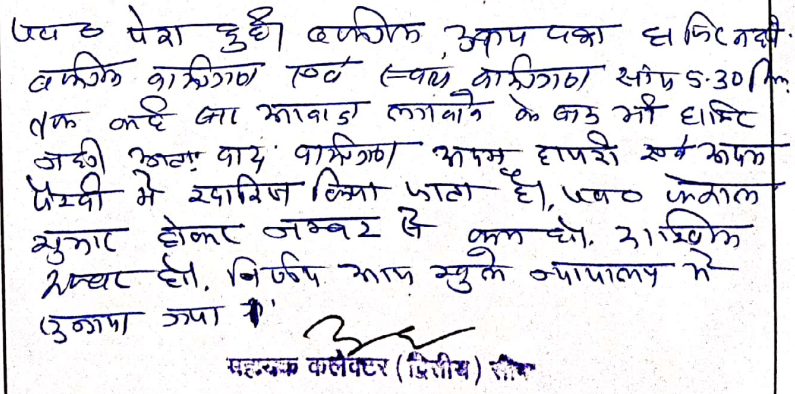 पत्रा० पेश हुई। वकील उभय पक्ष हाजिर नहीं.
वकील वादीगण एवं स्वयं वादीगण सांय 5.30 Pm
तक कई बार आवाज लगवाने के बाद भी हाजिर
नहीं अतः वाद वादीगण अदम हाजरी एवं अदम
पैरवी में खारिज किया जाता है। पत्रा० फैसल
शुमार होकर नम्बर से कम हो. दाखिल
दफ्तर हो. निर्णय आज खुले न्यायालय में
सुनाया गया।
सहायक कलेक्टर (द्वितीय)